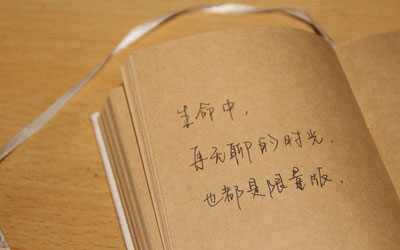 生命中,
再无聊的时光.
也都是限量版.